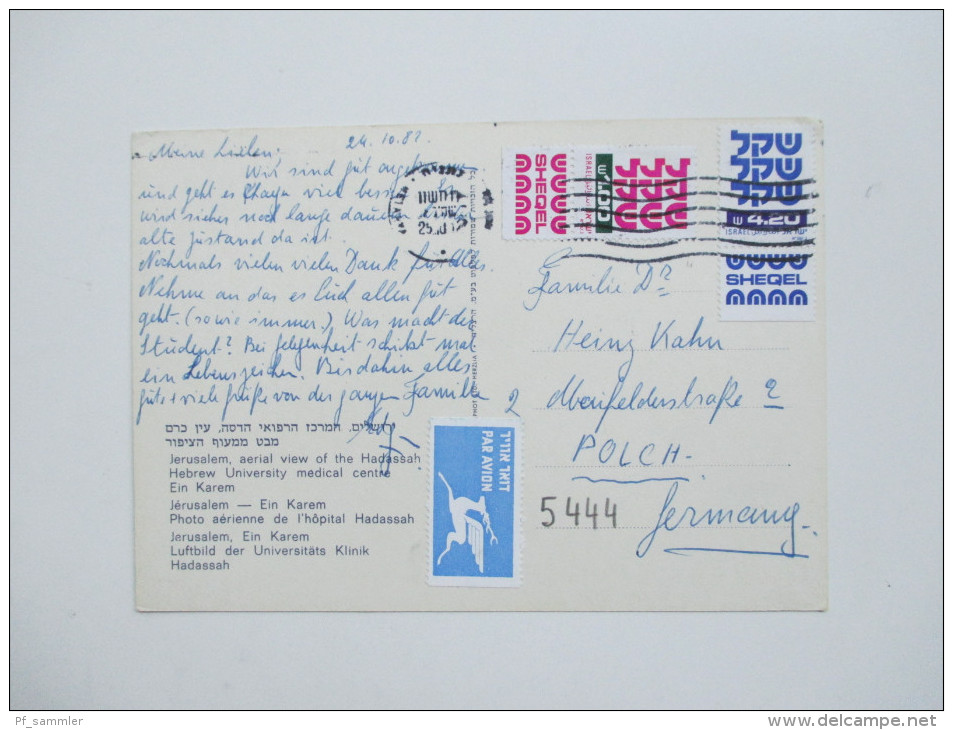 24.10.82
Meine Lieben,
Wir sind gut
und geht es Chaya viel
und sicher noch lange dauern
alte zustand da ist.
Nochmals vielen vielen Dank für Alles.
Nehme an das es Euch allen gut
geht. (sowie immer.) Was macht der
Student? Bei gelegenheit schikst mal
ein Lebenszeichen. Bis dahin alles
gute + viele grüße von der ganzen Familie
ירושלים, המרכז הרפואי הדסה, עין כרם
מבט ממעוף הציפור
Jerusalem, aerial view of the Hadassah
Hebrew University medical centre
Ein Karem
Jérusalem — Ein Karem
Photo aérienne de l'hôpital Hadassah
Jerusalem, Ein Karem
Luftbild der Universitäts Klinik
Hadassah
SHEQEL
ISRAEL
שקל
שקל
שקל
שקל
שקל
שקל
4.20
ISRAEL ישראל
SHEQEL
דואר אוויר
PAR AVION
Familie Dr
Heinz Kahn
2
POLCH-
5444 Germany-
Pf_sammler
www.delcampe.net